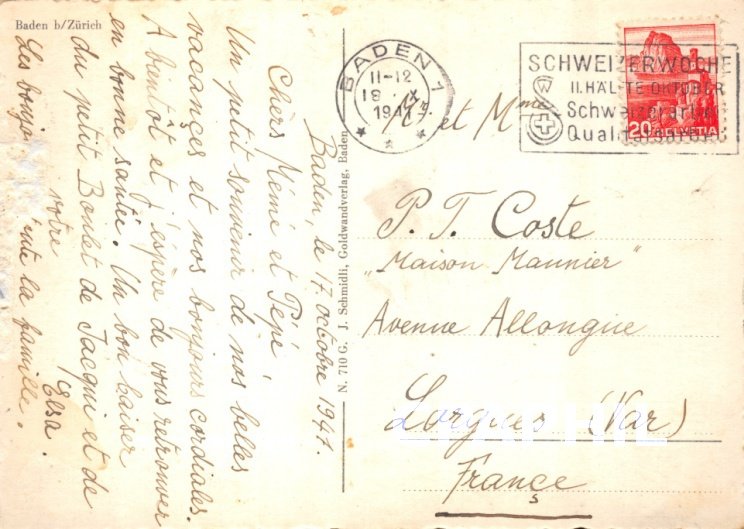 Baden b/Zürich
Baden, le 17 octobre 1941.
Chers Mémé et Pépé,
Un petit souvenir de nos belles
vacances et nos bonjours cordiales.
A bientôt et j'espère de vous retrouver
en bonne santée. Un bon baiser
du petit Boulet de Jacqui et de
votre Elsa.
Les bonjo ute la famille.
N. 710 G. J. Schmidli, Goldwandverlag, Baden
BADEN 1
11-12
1941
SCHWEIZERWOCHE
II. HÄLFTE OKTOBER
Schweizerarbeit
Qualitätsarbeit
20 HELVETIA
M. et Mme
P. T. Coste
„Maison Maunier"
Avenue Allongue
Lorgues (Var)
France